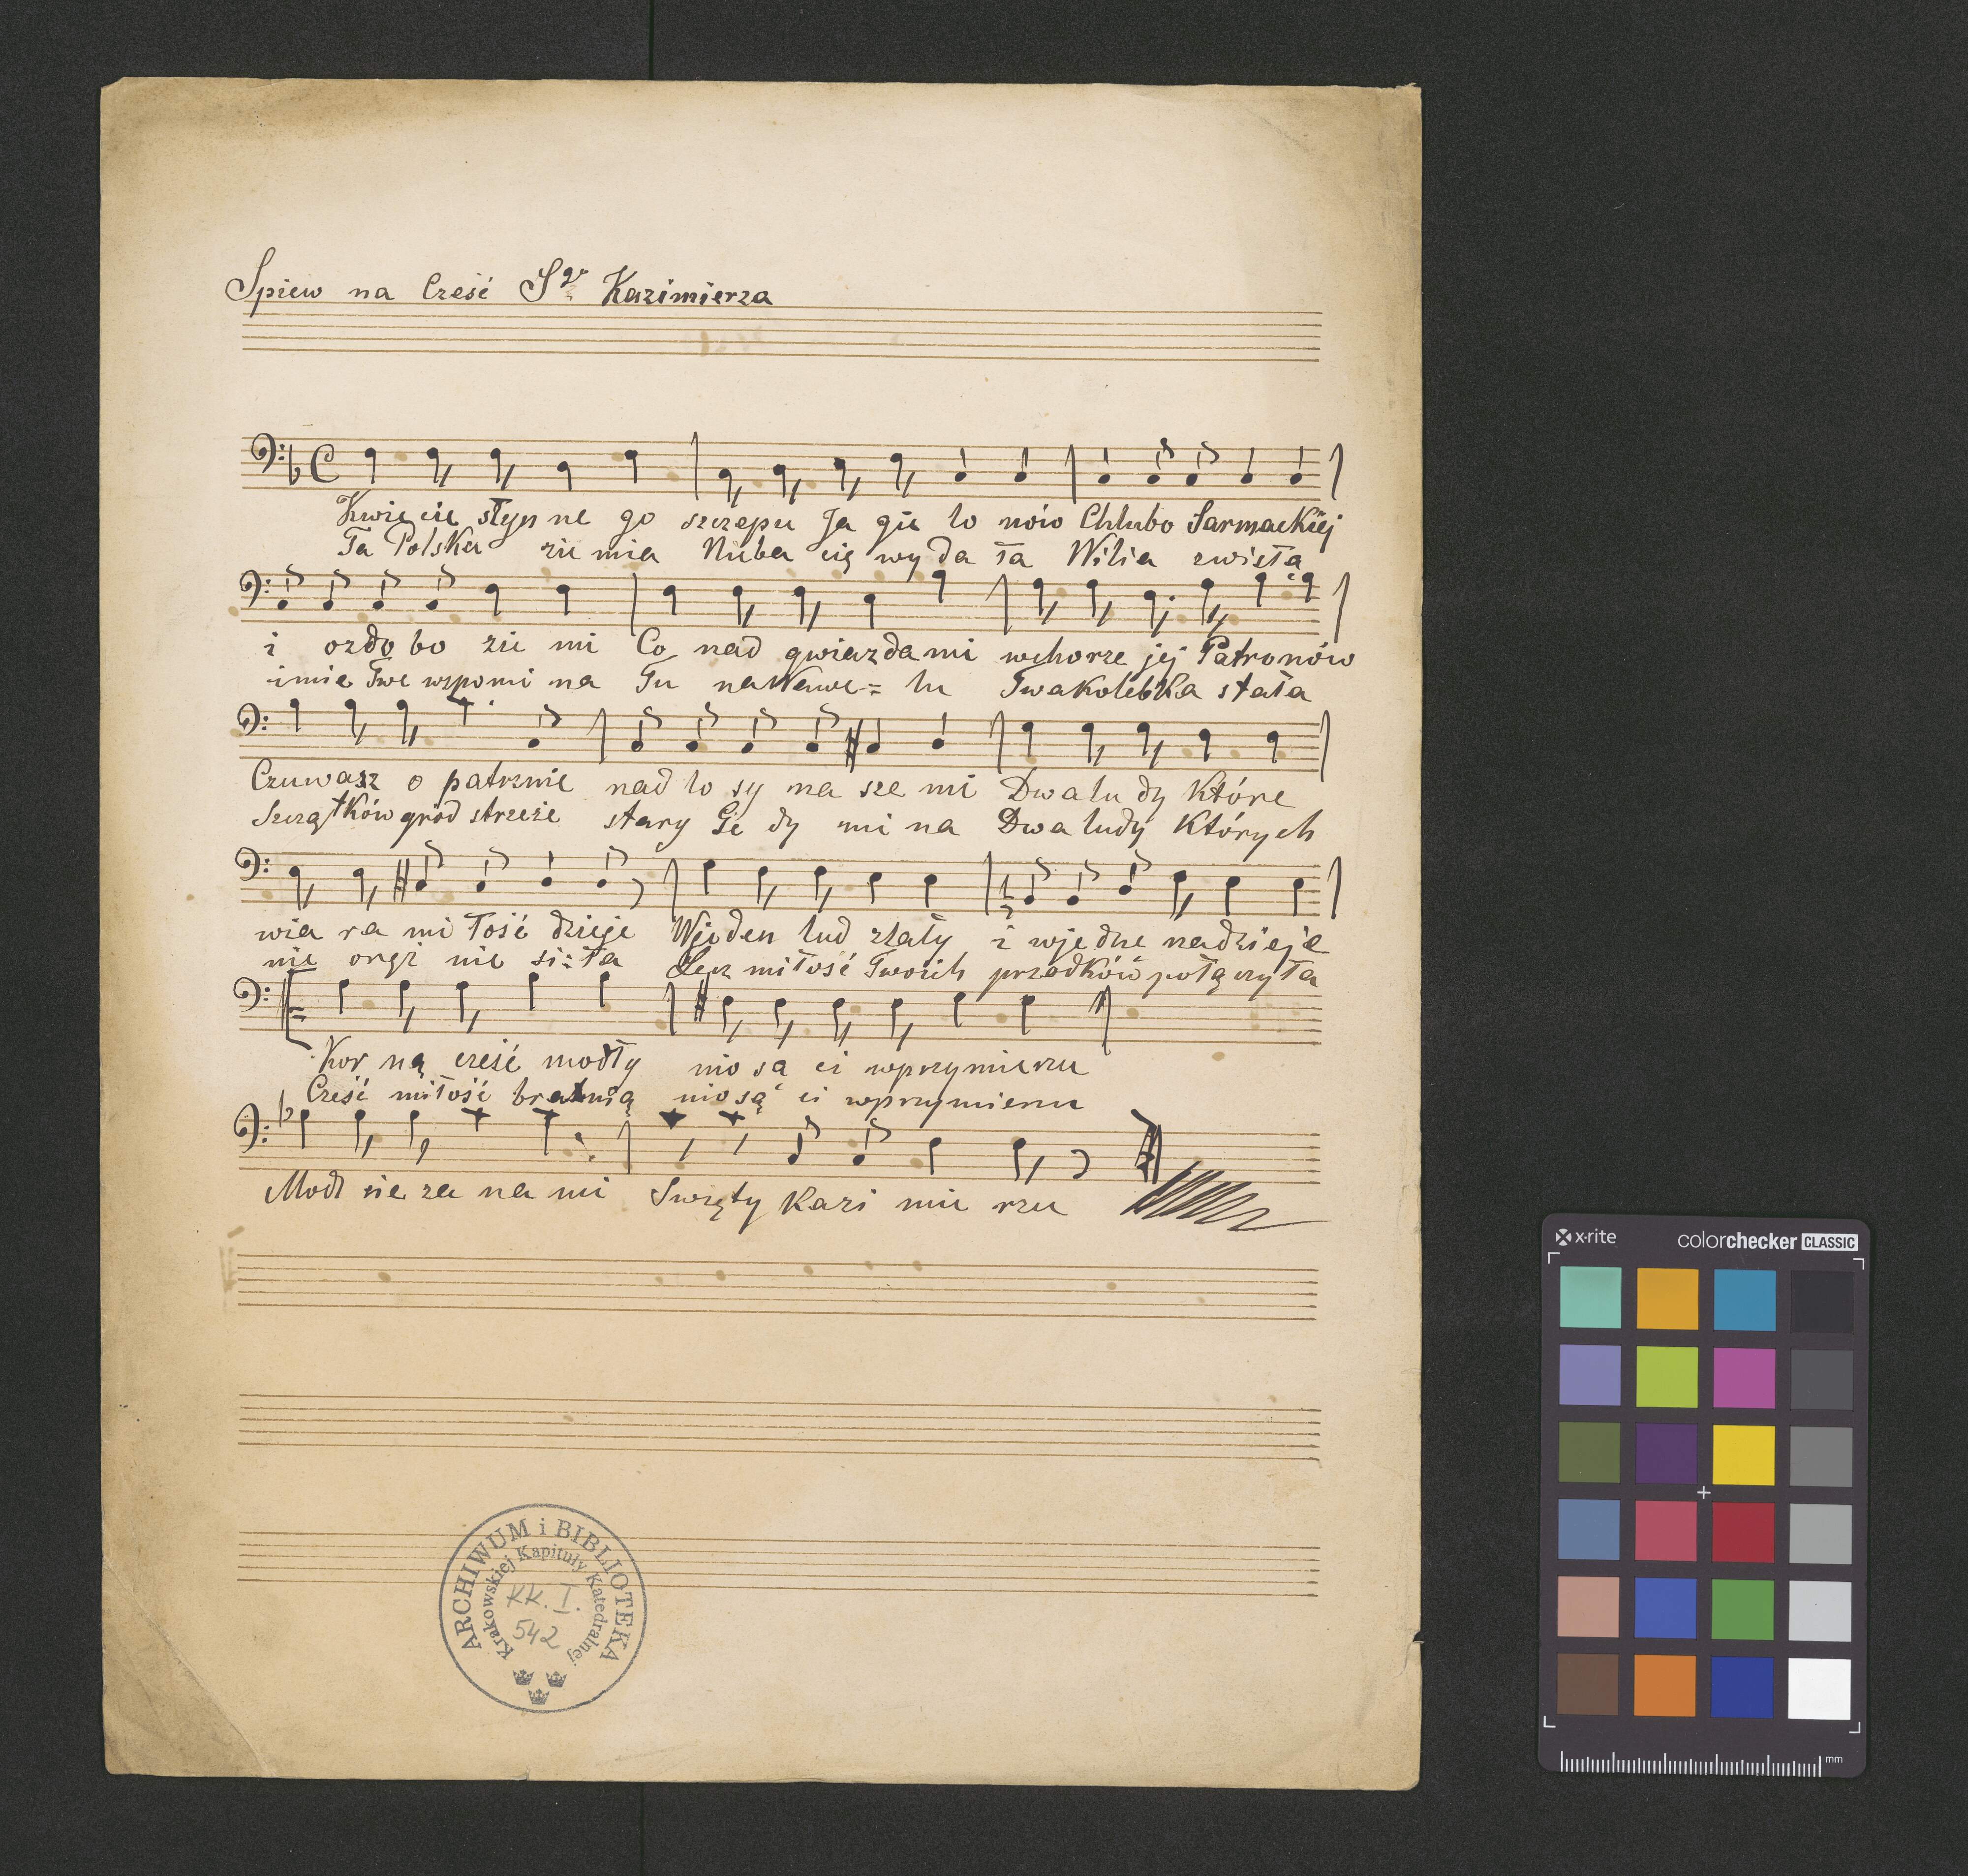 Spiew na Cześć Sgo Kazimierza
Kwie cie słyn ne go szczepu Ja gie lo nów Chlubo Sarmackiej
Ta Polska zie mia Nieba cię wy da ła Wilia zwięta
i ozdo bo zie mi Co nad gwiazda mi wchorze jej Patronów
imie Twe wspomi na Tu na Wawe = lu Twa kolebka stała
Czuwasz o patrznie nad lo sy na sze mi Dwa lu dy które
Szczątków gród strzeże stary Gie dy mi na Dwa ludy których
wia ra mi łość dzieje Wjeden lud zlały i wje dne nadzieje
nie oręż nie si: ła Lecz miłość Twoich przodków połą czy ła
Kor ną cześć modły nio sa ci wprzymierzu
Cześć miłość bratnią nio są ci wprzymierzu
Modl sie za na mi Swięty Kazi mie rzu
ARCHIWUM i BIBLIOTEKA
Krakowskiej Kapituły Katedralnej
KK. I.
542
x-rite colorchecker CLASSIC
mm